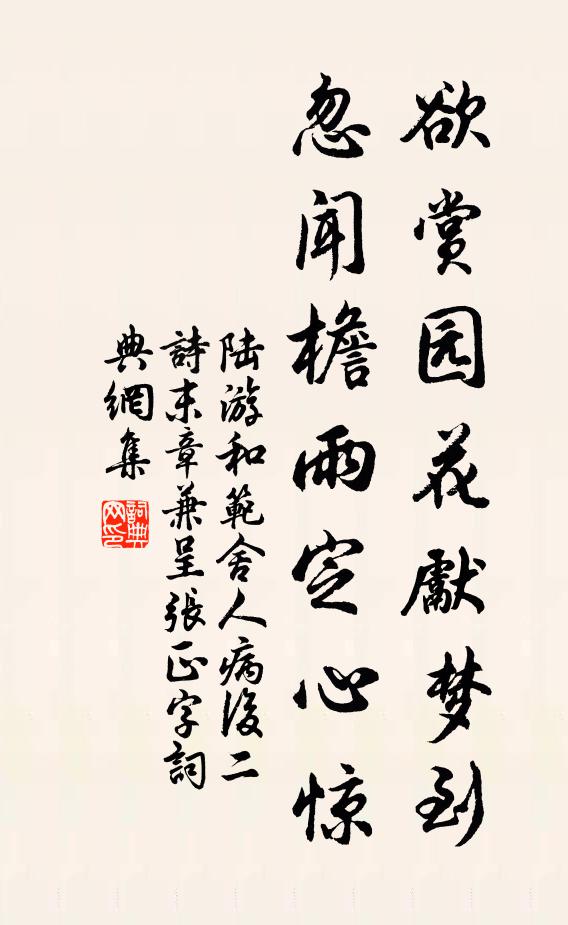 欲赏园花献梦到
忽闻檐雨定心惊
陆游和範舍人病後二
詩末章兼呈張正字詞
典網集
詞典网印